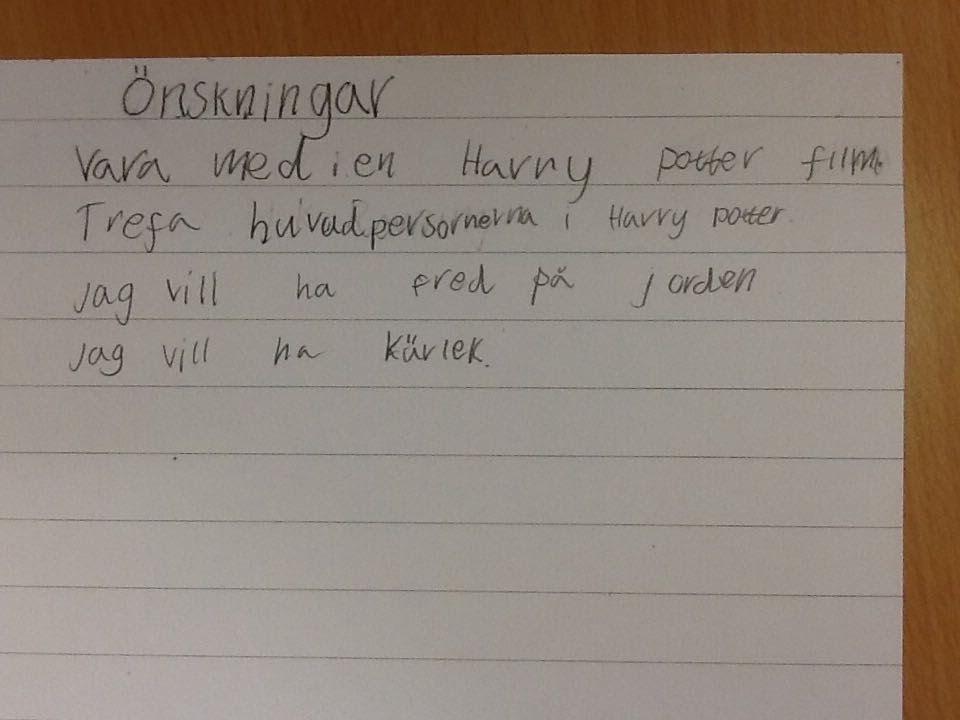 Önskningar
Vara med i en Harry potter film.
Trefa huvudpersornerna i Harry potter.
jag vill ha fred på jorden
jag vill ha kärlek.